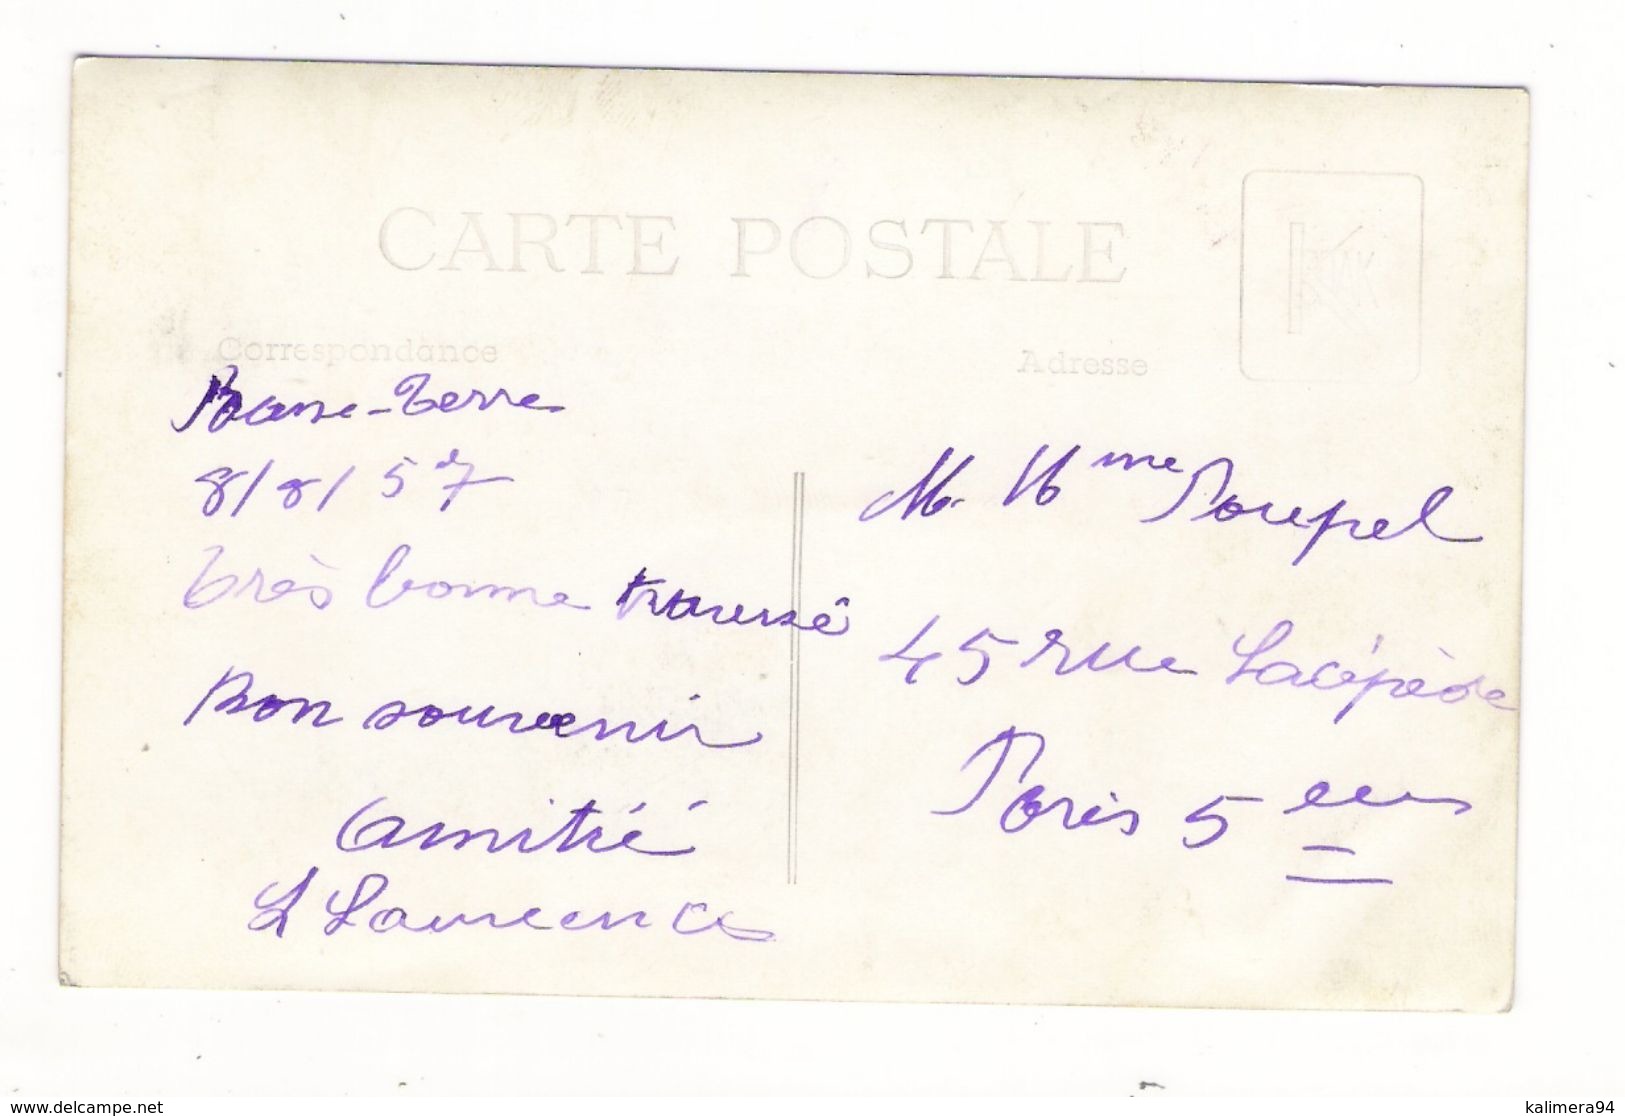 CARTE POSTALE
Correspondance
Adresse
Basse-Terre
8/8/57
Très bonne traversé
Bon souvenir
Amitié
L Laurence
M. Mme Poupel
45 rue Lacépède
Paris 5 em
www.delcampe.net
kalimera94